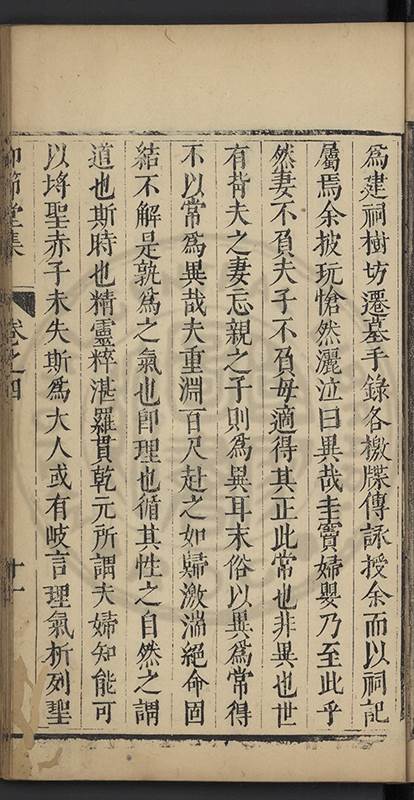 為建祠樹坊遷墓手錄各檄牒傳詠授余而以祠記
屬焉余披玩愴然灑泣曰異哉圭竇婦嬰乃至此乎
然妻不負夫子不負母適得其正此常也非異也世
有背夫之妻忘親之子則為異耳末俗以異為常得
不以常為異哉夫重淵百尺赴之如歸激湍絕命固
結不解是孰為之氣也卽理也循其性之自然之謂
道也斯時也精靈粹湛羅貫乾元所謂夫婦知能可
以埒聖赤子未失斯為大人或有岐言理氣析列聖
節堂集
卷之四
十一